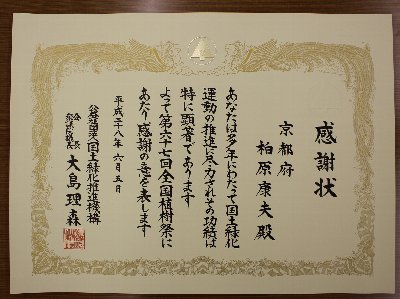 感謝状
京都府
柏原康夫殿
あなたは多年にわたって国土緑化
運動の推進に尽力されその功績は
特に顕著であります
よって第六十七回全国植樹祭に
あたり感謝の意を表します
平成二十八年六月五日
公益社団法人国土緑化推進機構
会長
衆議院議長
大島理森